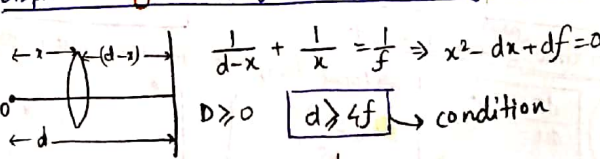 1/(d-x) + 1/x = 1/f ⇒ x² - dx + df = 0
← x → ← (d-x) →
O
D ≥ 0 d ≥ 4f → condition
← d →